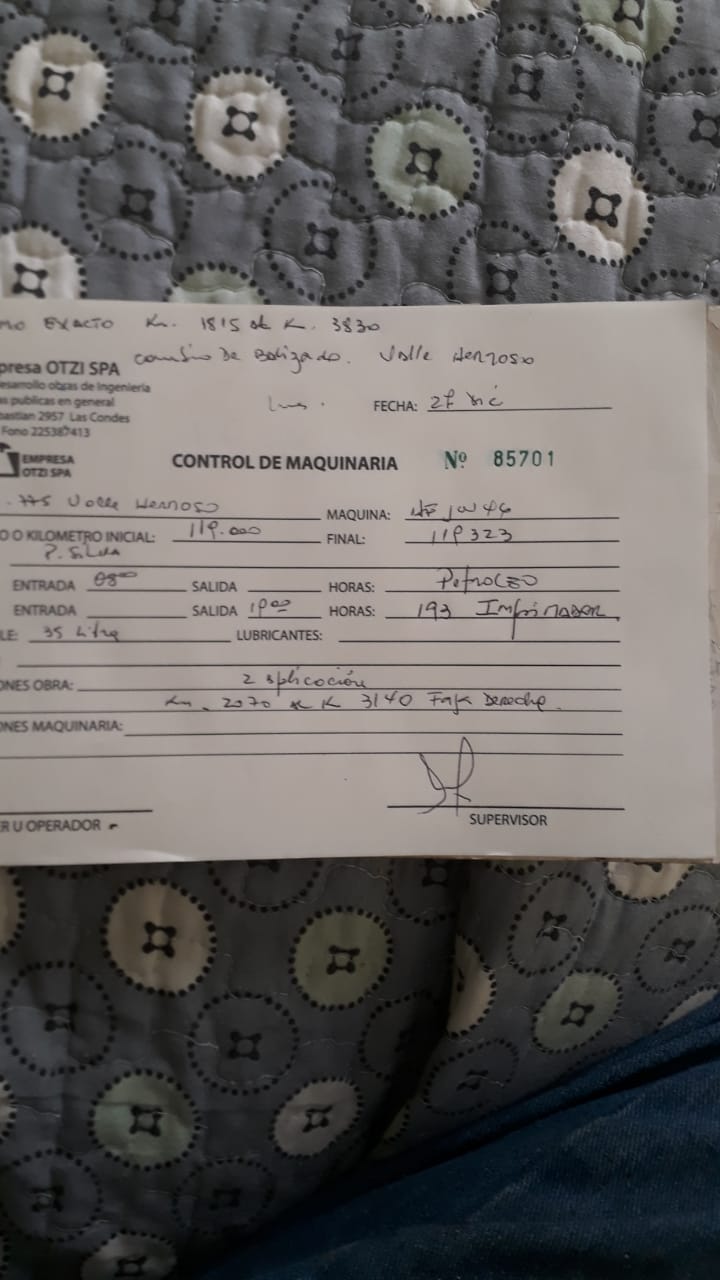 mo EXACTO Km. 1815 al K. 3830
presa OTZI SPA camino De Bolizado. Valle Hermoso
esarrollo obras de Ingeniería
as publicas en general
bastian 2957 Las Condes
Fono 225387413
FECHA: 27 Dic
EMPRESA
OTZI SPA
CONTROL DE MAQUINARIA Nº 85701
775 Valle Hermoso MAQUINA: 44
O O KILOMETRO INICIAL: 119.000 FINAL: 119323
P. Silda
ENTRADA 08 00 SALIDA HORAS: Petroleo
ENTRADA SALIDA 19 00 HORAS: 193 Imprimador.
LE: 35 Litro LUBRICANTES:
ONES OBRA: 2 aplicación
Km. 2070 al K 3140 Faja Derecha.
ONES MAQUINARIA:
ER U OPERADOR
SUPERVISOR